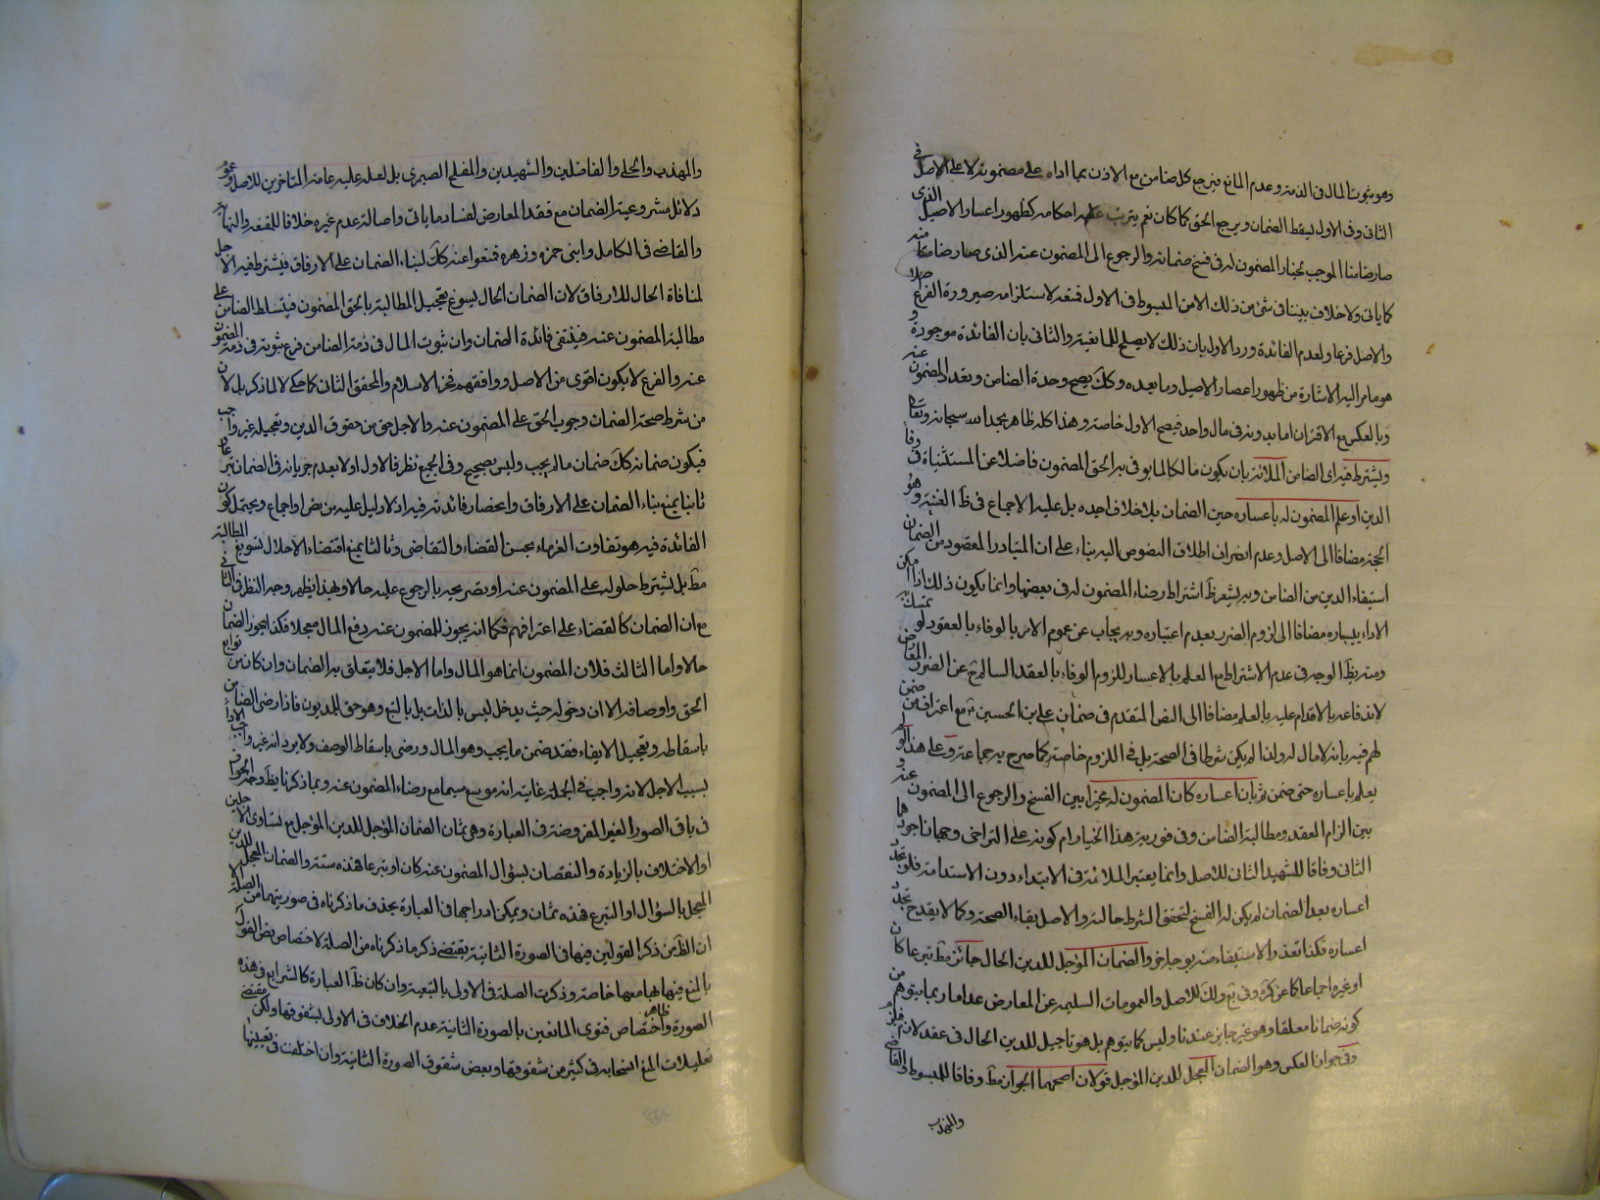 وهو ثبوت المال في الذمة وعدم المانع فيرجع كل ضامن مع الاذن بما اداه على مضمونه لا على الاصل في
الثاني وفي الاول يسقط الضمان ويرجع الحق كما كان نعم يترتب عليه احكامه كظهور اعسار الاصيل الذي
صار ضامنا الموجب لخيار المضمون له في فسخ ضمانه والرجوع الى المضمون عنه الذي صار ضامنا منه
كما ياتي ولا خلاف بيننا في شيء من ذلك الا من المبسوط في الاول فمنعه لاستلزامه صيرورة الفرع اصلا
والاصل فرعا ولعدم الفائدة ورد الاول بان ذلك لا يصلح للمانعية والثاني بان الفائدة موجودة و
هو ما مر اليه الاشارة من ظهور اعسار الاصيل وما بعده وكك يصح وحدة الضامن وتعدد المضمون عنه
وبالعكس مع الاقتران اما بدونه في مال واحد فيصح الاول خاصة وهذا كله ظاهر بحمد الله سبحانه وتعالى
ويشترط فيه اي الضامن الملائة بان يكون مالكا لما يوفي به الحق المضمون فاضلا عن المستثنياة في وفاء
الدين او علم المضمون له باعساره حين الضمان بلا خلاف اجده بل عليه الاجماع في ظ الغنية وهو
الحجة مضافا الى الاصل وعدم انصراف اطلاق النصوص اليه بناء على ان المتبادر المقصود من الضمان
استيفاء الدين من الضامن وبه يشعر ظ اشتراط رضاء المضمون له في بعضها وانما يكون ذلك اذا امكن
الاداء بيساره مضافا الى لزوم الضرر بعدم اعتباره وبه يجاب عن عموم الامر بالوفاء بالعقود لو تمسك به
ومنه يظ الوجه في عدم الاشتراط مع العلم بالاعسار للزوم الوفاء بالعقد السالم عن الضرر المعارض
لاندفاعه بالاقدام عليه بالعلم مضافا الى النص المتقدم في ضمان علي بن الحسين ع مع اعترافه ضمن
لهم فيه بانه لا مال له ولذا لم يكن شرطا في الصحة بل في اللزوم خاصة كما صرح به جماعة وعلى هذا لو لم
يعلم باعساره حتى ضمن ثم بان اعساره كان المضمون له مخيرا بين الفسخ والرجوع الى المضمون عنه و
بين الزام العقد ومطالبة الضامن وفي فورية هذا الخيار ام كونه على التراخي وجهان اجودهما
الثاني وفاقا للشهيد الثاني للاصل وانما يعتبر الملائة في الابتداء دون الاستدامة فلو تجدد
اعساره بعد الضمان لم يكن له الفسخ لتحقق الشرط حالته والاصل بقاء الصحة وكما لا يقدح تجدد
اعساره فكذا تعذر الاستيفاء منه بوجه اخر والضمان المؤجل للدين الحال جائز مط تبرعا كان
او غيره اجماعا كما عن كرة وفي ع ولك للاصل والعمومات السليمة عن المعارض عدا ما ربما يتوهم من
كونه ضمانا معلقا وهو غير جايز عندنا وليس كما يتوهم بل هو تاجيل للدين الحال في عقد لازم فيلزم
وفي جواز العكس وهو الضمان المعجل للدين المؤجل قولان اصحهما الجواز مط وفاقا للمبسوط والقاضي
والمهذب
والمهذب والحلي والفاضلين والشهيدين والمفلح الصيمري بل لعله عليه عامة المتاخرين للاصل وعموم
دلائل مشروعية الضمان مع فقد المعارض لفساد ما ياتي واصالة عدم غيره خلافا للمقنعة والنهاية
والقاضي في الكامل وابني حمزة وزهرة فمنعوا عنه كك لبناء الضمان على الارفاق فيشترط فيه الاجل
لمنافاة الحال للارفاق لان الضمان الحال يسوغ تعجيل المطالبة بالحق المضمون فيتسلط الضامن على
مطالبة المضمون عنه فينتفي فائدة الضمان وان ثبوت المال في ذمة الضامن فرع ثبوته في ذمة المضمون
عنه والفرع لا يكون اقوى من الاصل ووافقهم فخر الاسلام والمحقق الثاني كما حكي لا لما ذكر بل لان
من شرط صحة الضمان وجوب الحق على المضمون عنه والاجل حق من حقوق الدين وتعجيله غير واجب
فيكون ضمانه كك ضمان ما لم يجب وليس بصحيح وفي الجميع نظر فالاول اولا بعدم جريانه في الضمان تبرعا و
ثانيا بمنع بناء الضمان على الارفاق وانحصار فائدته فيه اذ لا دليل عليه من نص او اجماع ويحتمل كون
الفائدة فيه هو تفاوت الغرماء بحسن القضاء والتقاضي وثالثا بمنع اقتضاء الاحلال تسويغ المطالبة
مط بل يشترط حلوله على المضمون عنه او تصريحه بالرجوع عليه حالا وبهذا يظهر وجه النظر في الثاني
مع ان الضمان كالقضاء على اعترافهم فكما انه يجوز للمضمون عنه دفع المال معجلا فكذا يجوز الضمان
حالا واما الثالث فلان المضمون انما هو المال واما الاجل فلا يتعلق به الضمان وان كان من توابع
الحق واوصافه الا ان دخوله حيث يدخل ليس بالذات بل بالتبع وهو حق للمديون فاذا رضي الضامن
باسقاطه وتعجيل الايفاء فقد ضمن ما يجب وهو المال ورضي باسقاط الوصف ولا يرد انه غير واجب الاداء
بسبب الاجل لانه واجب في الجملة غايته انه موسع سيما مع رضاء المضمون عنه وبما ذكرنا يظ وجه الجواز
في باقي الصور الغير المفروضة في العبارة وهي ثمان الضمان المؤجل للدين المؤجل مع تساوي الاجلين
او الاختلاف بالزيادة والنقصان بسؤال المضمون عنه كان او تبرعا فهذه ستة والضمان المعجل للدين
المعجل بالسؤال او التبرع فهذه ثمان ويمكن ادراجها في العبارة بحذف ما ذكرناه في صورتيهما من الصلة الا
ان الظ من ذكر القولين فيها في الصورة الثانية يقتضي ذكر ما ذكرناه من الصلة لاختصاص بعض القول
بالمنع فيها بها معها خاصة وذكرت الصلة في الاولى بالتبعية وان كان ظ العبارة كالشرايع في هذه
الصورة واختصاص ظاهر فتوى المانعين بالصورة الثانية عدم الخلاف في الاولى بشقوقها ولكن مقتضى
تعليلات المنع انسحابه في كثير من شقوقها وبعض شقوق الصورة الثانية وان اختلفت في تعيينها